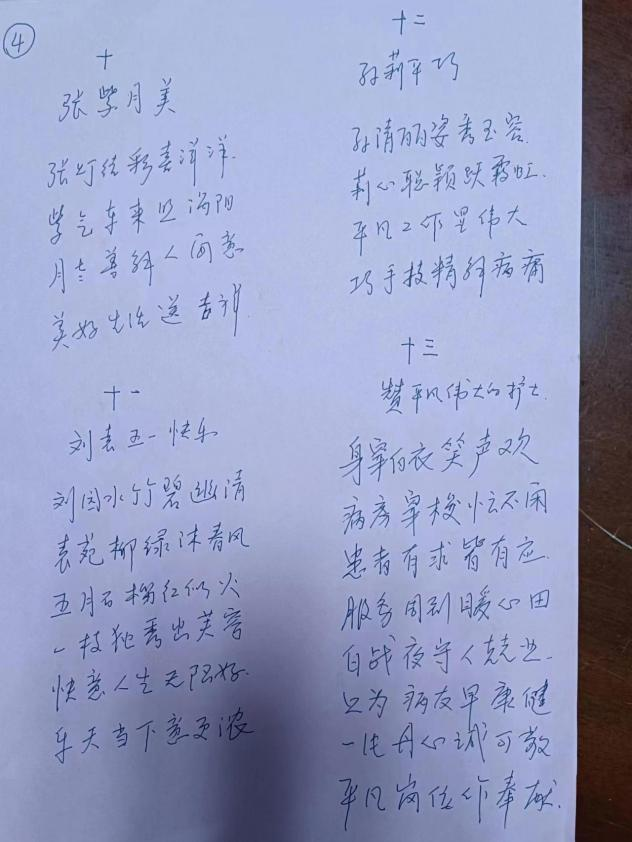 ④
十
张紫月美
张灯结彩喜洋洋.
紫气东来照涡阳
月老善解人间意
美好生活送吉祥.
十一
刘袁五一快乐
刘园水竹碧幽清
袁苑柳绿沐春风
五月石榴红似火
一枝独秀出芙蓉
快意人生无限好.
乐天当下意更浓
十二
孙莉平巧
孙倩丽姿秀玉容.
莉心聪颖跃霓虹.
平凡工作显伟大
巧手技精解病痛
十三
赞平凡伟大的护士.
身穿白衣笑声欢
病房穿梭忙不闲
患者有求皆有应.
服务周到暖心田
白战夜守人兢业.
只为病友早康健
一片丹心诚可敬
平凡岗位作奉献.